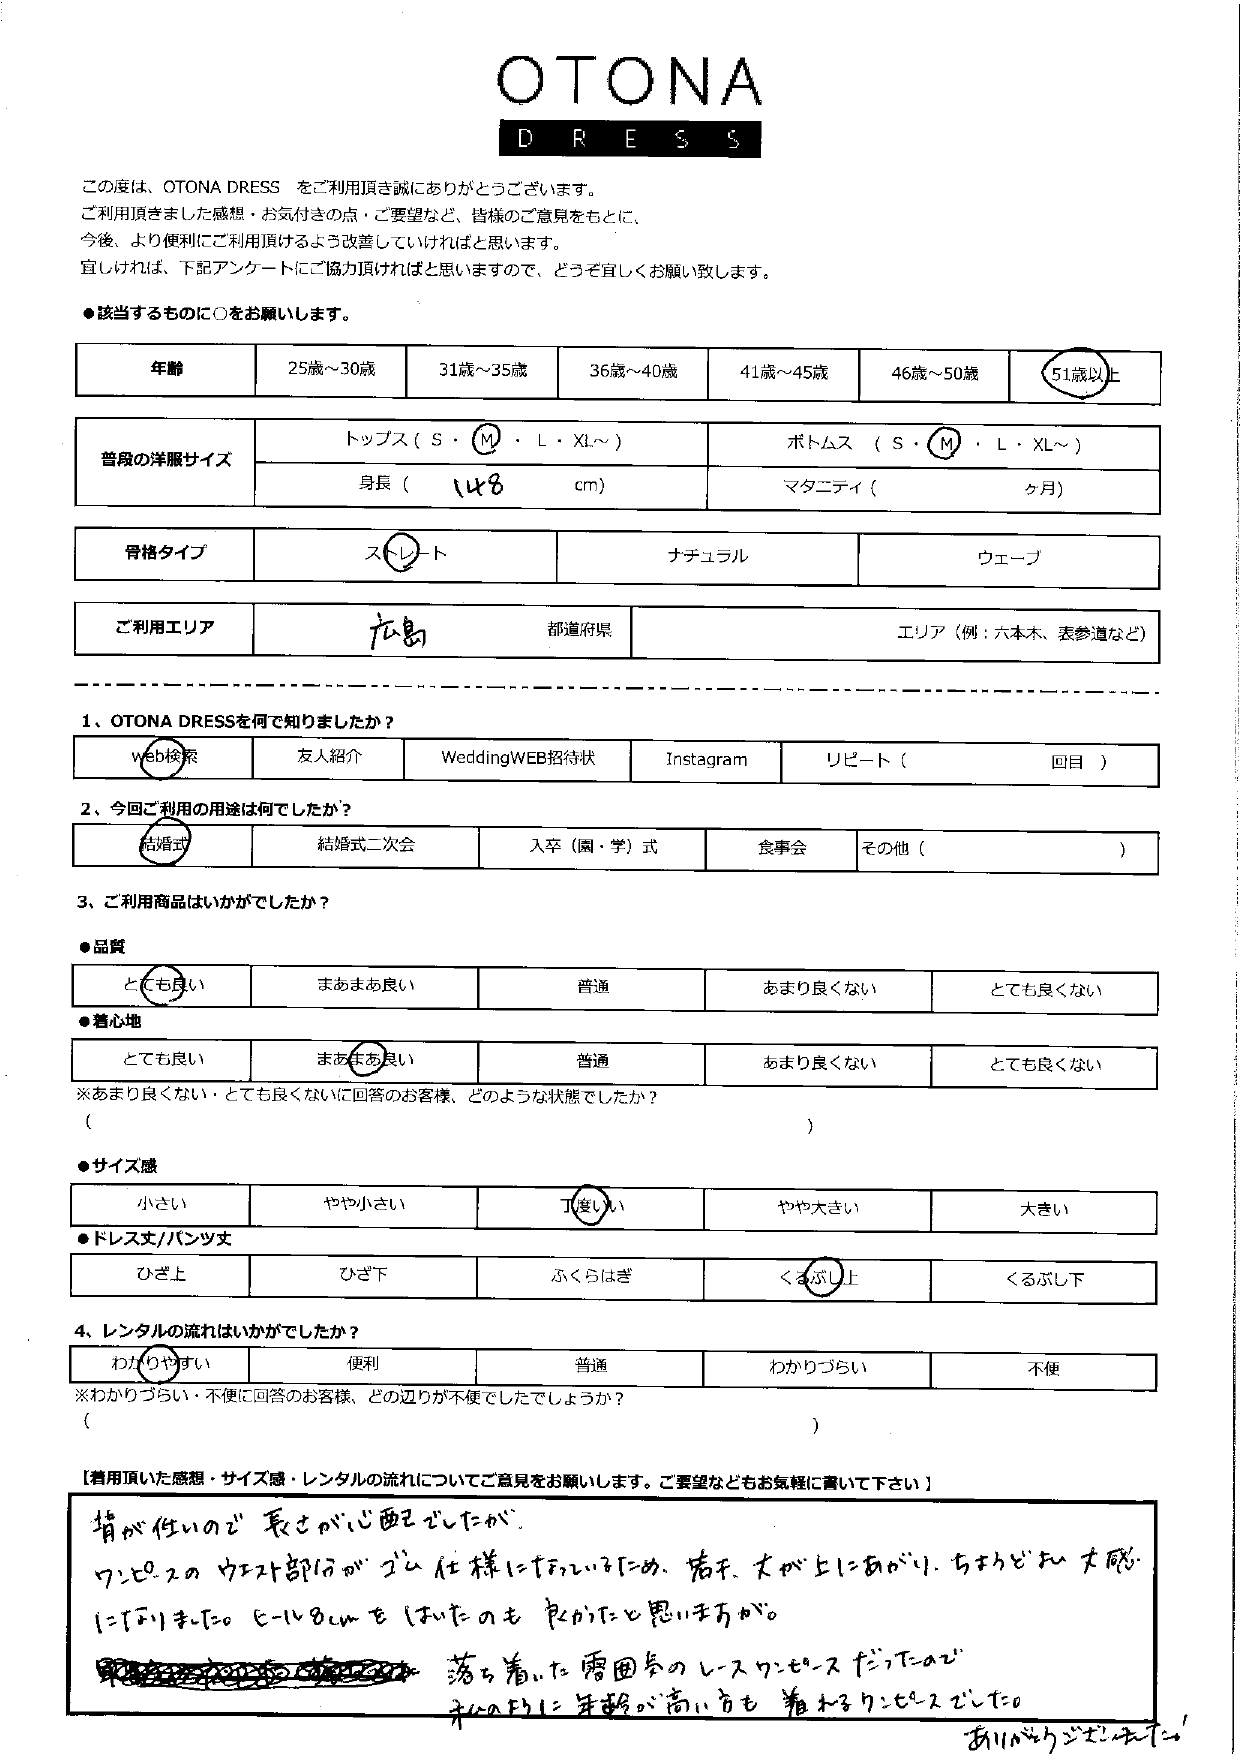 OTONA
DRESS
この度は、OTONA DRESS をご利用頂き誠にありがとうございます。
ご利用頂きました感想・お気付きの点・ご要望など、皆様のご意見をもとに、
今後、より便利にご利用頂けるよう改善していければと思います。
宜しければ、下記アンケートにご協力頂ければと思いますので、どうぞ宜しくお願い致します。
●該当するものに○をお願いします。
年齢 25歳～30歳 31歳～35歳 36歳～40歳 41歳～45歳 46歳～50歳 51歳以上
普段の洋服サイズ トップス ( S ・ M ・ L ・ XL～ ) ボトムス ( S ・ M ・ L ・ XL～ )
身長 ( 148 cm) マタニティ ( ヶ月)
骨格タイプ ストレート ナチュラル ウェーブ
ご利用エリア 広島 都道府県 エリア（例：六本木、表参道など）
1、OTONA DRESSを何で知りましたか？
web検索 友人紹介 WeddingWEB招待状 Instagram リピート ( 回目 )
2、今回ご利用の用途は何でしたか？
結婚式 結婚式二次会 入卒（園・学）式 食事会 その他 ( )
3、ご利用商品はいかがでしたか？
●品質
とても良い まあまあ良い 普通 あまり良くない とても良くない
●着心地
とても良い まあまあ良い 普通 あまり良くない とても良くない
※あまり良くない・とても良くないに回答のお客様、どのような状態でしたか？
( )
●サイズ感
小さい やや小さい 丁度いい やや大きい 大きい
●ドレス丈/パンツ丈
ひざ上 ひざ下 ふくらはぎ くるぶし上 くるぶし下
4、レンタルの流れはいかがでしたか？
わかりやすい 便利 普通 わかりづらい 不便
※わかりづらい・不便に回答のお客様、どの辺りが不便でしたでしょうか？
( )
【着用頂いた感想・サイズ感・レンタルの流れについてご意見をお願いします。ご要望などもお気軽に書いて下さい】
背が低いので 長さが心配でしたが、
ワンピースの ウエスト部分が ゴム仕様になっているため、若干、丈が上にあがり、ちょうどよい 丈感
になりました。ヒール8cmを はいたのも 良かったと思いますが。
落ち着いた雰囲気のレースワンピースだったので
私のように 年齢が高い方も 着れるワンピースでした。
ありがとうございました!